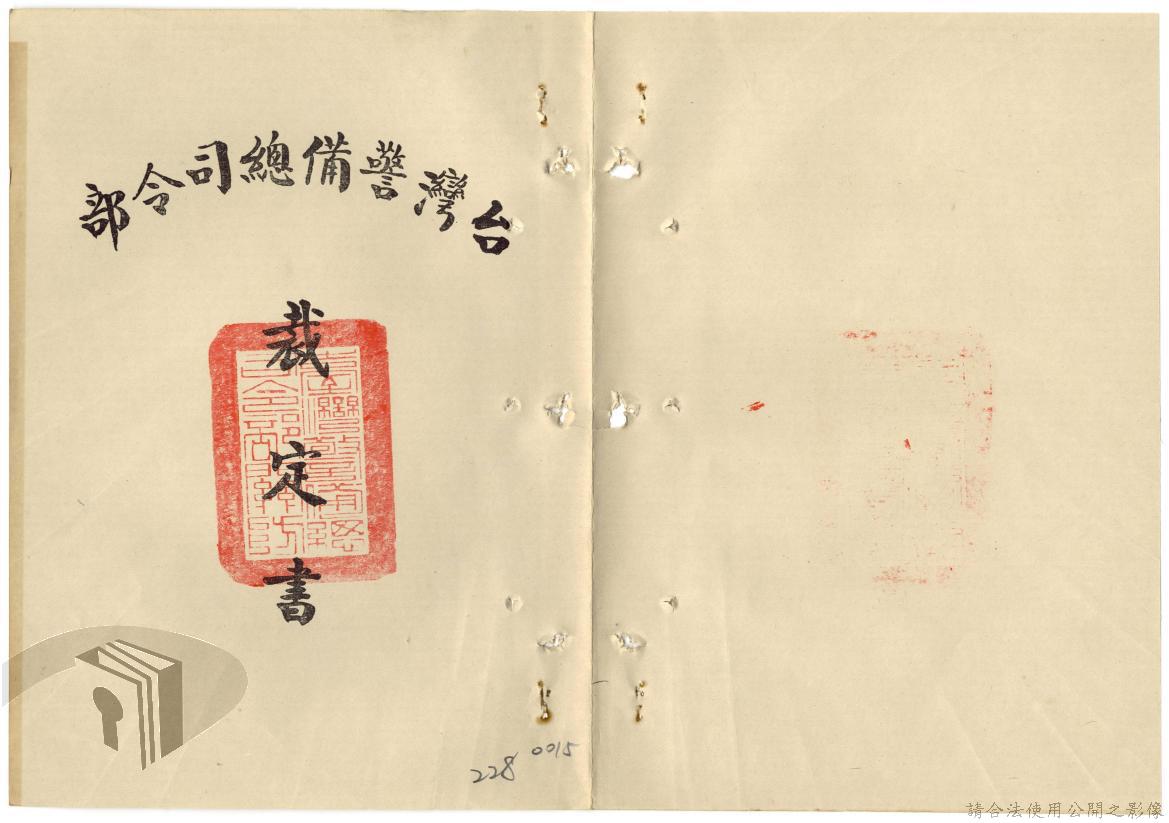 台灣警備總司令部
裁定書
臺灣警備總
司令部關防
228 0015
請合法使用公開之影像